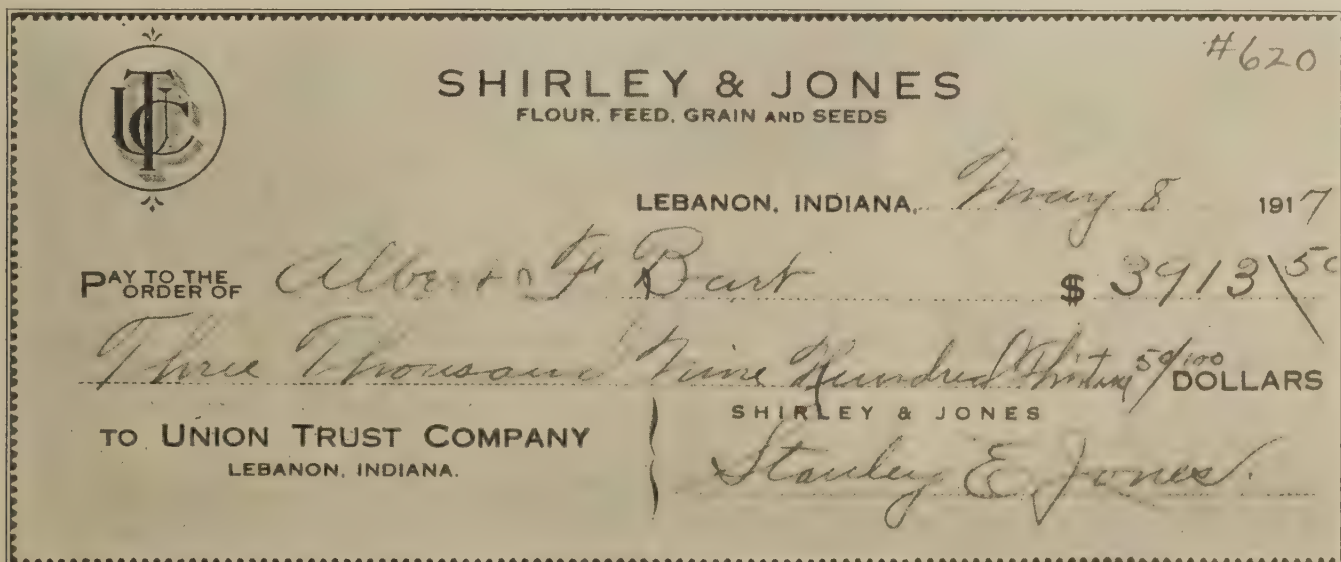 #620
UTC
SHIRLEY & JONES
FLOUR, FEED, GRAIN AND SEEDS
LEBANON, INDIANA, May 8 1917
PAY TO THE ORDER OF F Burt $ 3913 50
Three Thousand Nine Hundred Thirteen 50/100 DOLLARS
TO UNION TRUST COMPANY
LEBANON, INDIANA.
SHIRLEY & JONES
Stanley E Jones.